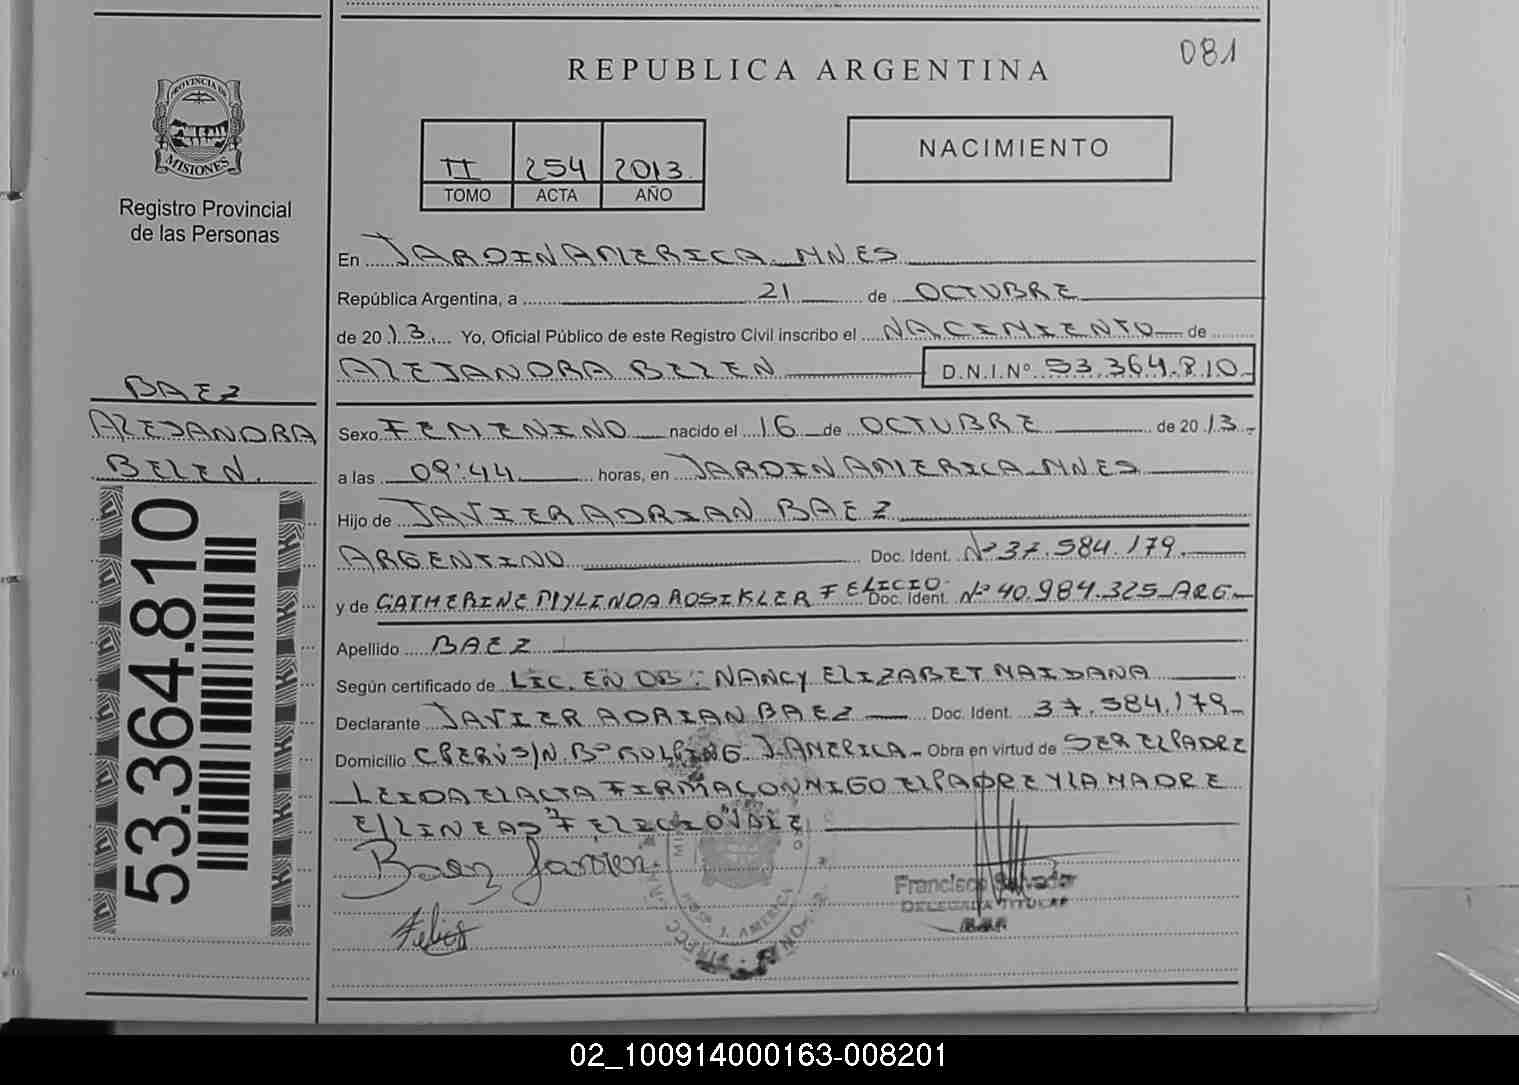 081
REPUBLICA ARGENTINA
PROVINCIA DE
MISIONES
Registro Provincial
de las Personas
II 254 2013.
TOMO ACTA AÑO
NACIMIENTO
En JARDIN AMERICA MNES
República Argentina, a 21 de OCTUBRE
de 2013. Yo, Oficial Público de este Registro Civil inscribo el NACIMIENTO de
ALEJANDRA BELEN D.N.I.Nº 53.364.810
BAEZ
ALEJANDRA
BELEN.
Sexo FEMENINO nacido el 16 de OCTUBRE de 2013
a las 09:44 horas, en JARDIN AMERICA MNES
Hijo de JAVIER ADRIAN BAEZ
ARGENTINO Doc. Ident. Nº 37.584.179
y de CATHERINE MYLINDA ROSIKLER FELICIO Doc. Ident. Nº 40.984.325 ARG
Apellido BAEZ
Según certificado de LIC. EN OB: NANCY ELIZABET MAIDANA
Declarante JAVIER ADRIAN BAEZ Doc. Ident. 37.584.179
Domicilio S/N. Bº J. AMERICA Obra en virtud de SER EL PADRE
LEIDA EL ACTA FIRMA CONMIGO EL PADRE Y LA MADRE
E/LINEAS "FELICIO" VALE
Baez Javier
Felicio
J. AMERICA
Francisco Salvador
DELEGADA TITULAR
53.364.810
02_100914000163-008201